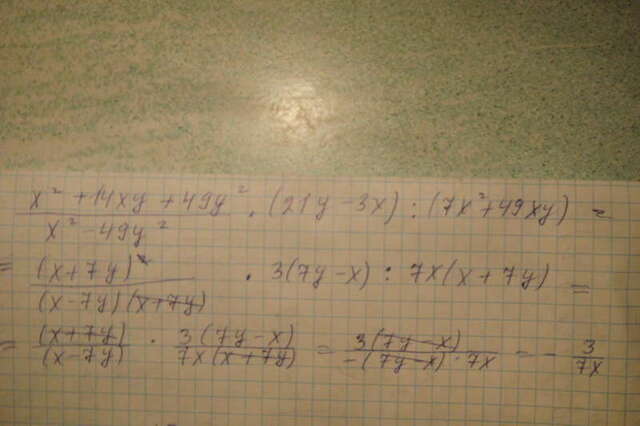 x² + 14xy + 49y² / x² - 49y² · (21y - 3x) : (7x² + 49xy) =
= (x + 7y)² / (x - 7y)(x + 7y) · 3(7y - x) : 7x(x + 7y) =
= (x + 7y) / (x - 7y) · 3(7y - x) / 7x(x + 7y) = 3(7y - x) / -(7y - x) · 7x = - 3 / 7x